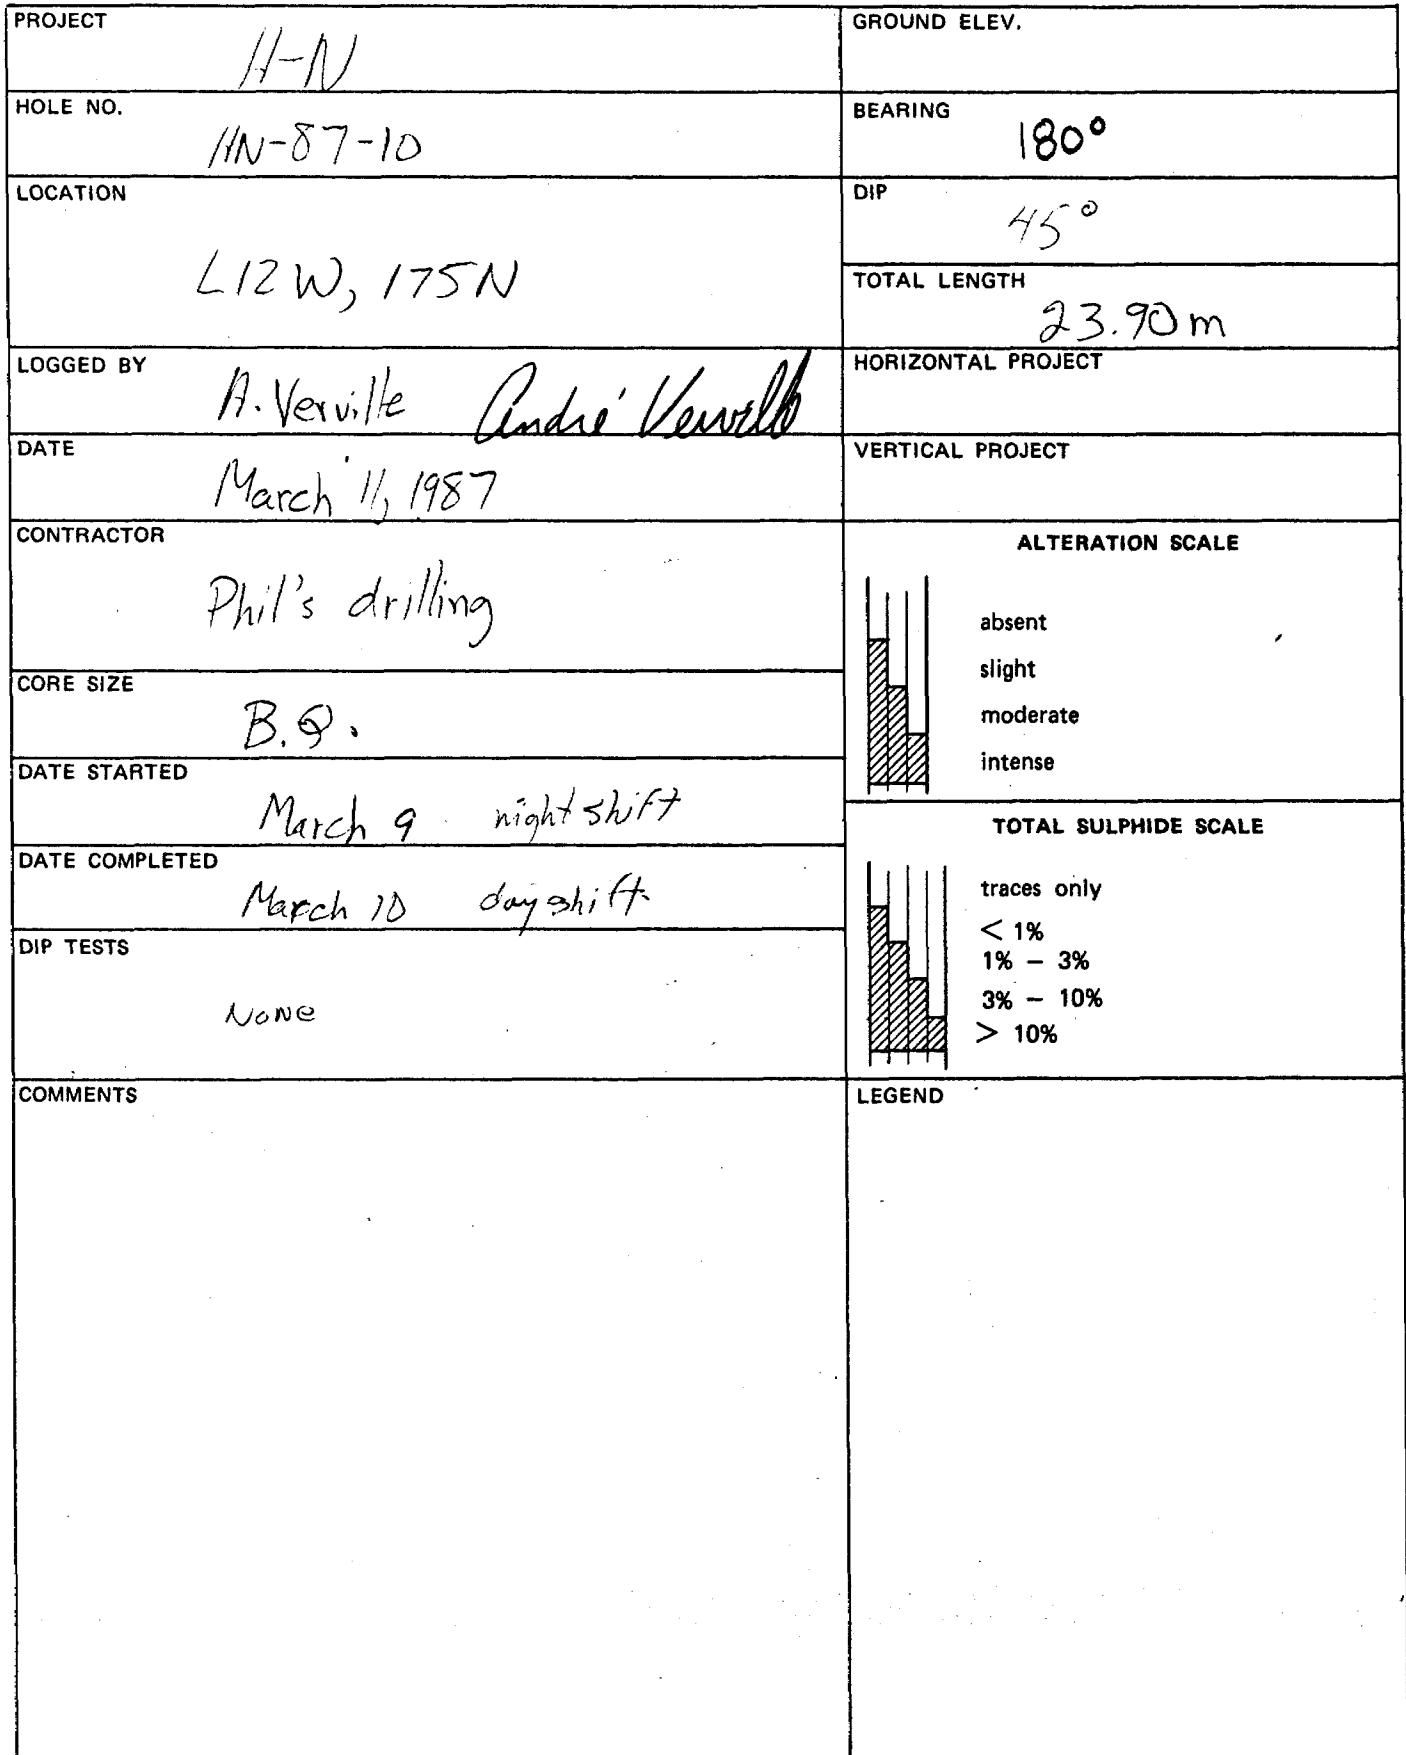 PROJECT
H-N
HOLE NO.
HN-87-10
LOCATION
L12W, 175N
LOGGED BY
A. Verville André Verville
DATE
March 11, 1987
CONTRACTOR
Phil's drilling
CORE SIZE
B.Q.
DATE STARTED
March 9 night shift
DATE COMPLETED
March 10 day shift.
DIP TESTS
None
COMMENTS
GROUND ELEV.
BEARING
180°
DIP
45°
TOTAL LENGTH
23.90 m
HORIZONTAL PROJECT
VERTICAL PROJECT
ALTERATION SCALE
absent
slight
moderate
intense
TOTAL SULPHIDE SCALE
traces only
< 1%
1% – 3%
3% – 10%
> 10%
LEGEND